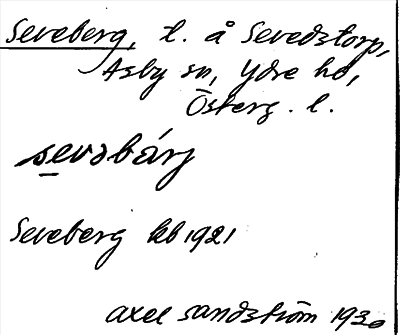 Seveberg, t. å Sevedstorp,
Asby sn, Ydre hd,
Österg. l.
sevəbärj
Seveberg kb 1921
Axel Sandström 1930